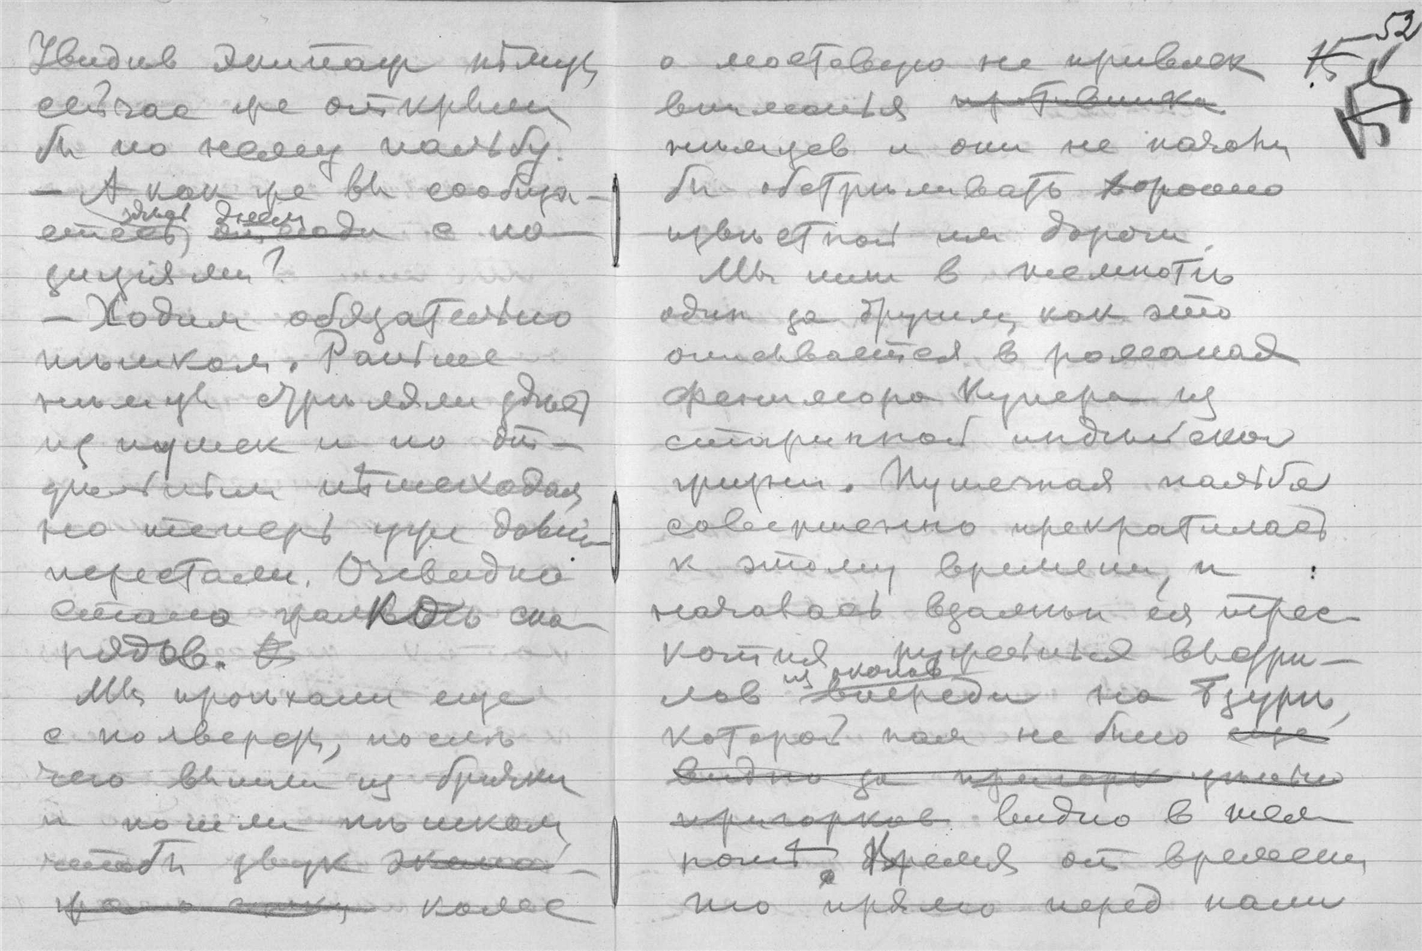 Увидив экипаж нѣмцы
сейчас же открыли
бы по нему пальбу.
— А как же вы сообща-
здѣсь днем
етесь, с по-
зициями?
— Ходим обязательно
пѣшком. Раньше
нѣмцы стрѣляли здѣсь
из пушек и по от-
дѣльным пѣшеходам,
но теперь уже давно
перестали. Очевидно
стало жалко сна-
рядов.
Мы проѣхали еще
с полверсты, послѣ
чего вышли из брички
и пошли пѣшком,
чтобы звук экипа-
жа колес
52
15
о мостовую не привлек
вниманья противника
нѣмцев и они не начали
бы обстрѣливать хорошо
извѣстной им дороги.
Мы шли в темнотѣ
один за другим, как это
описывается в романах
Фенимора Купера из
старинной индѣйской
жизни. Пушечная пальба
совершенно прекратилась
к этому времени, и
началась взамѣн ея трес-
котня ружейных выстрѣ-
из окопов
лов впереди на Бзурѣ,
которой нам не было еще
видно за
пригорков видно в тем-
нотѣ. Время от времени
то прямо перед нами